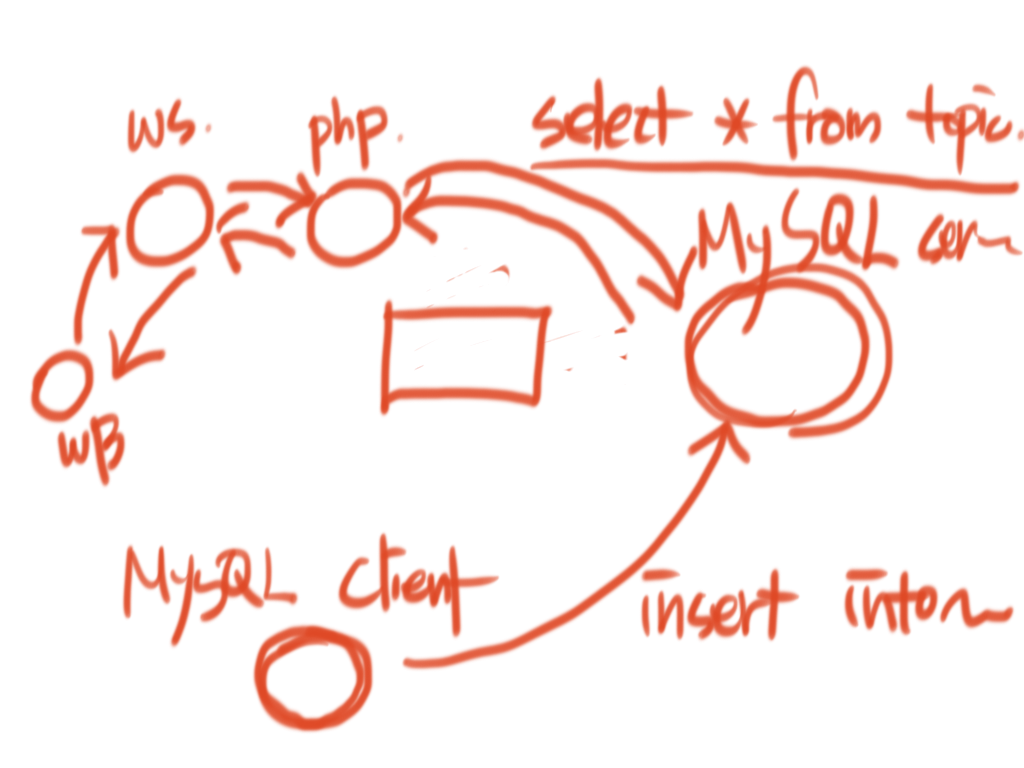 ws.
php.
select * from topic
MySQL
wB
MySQL client
insert into